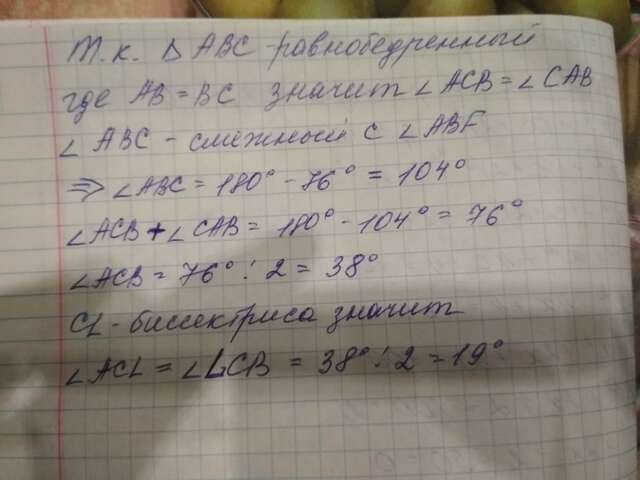 Т.к. Δ ABC равнобедренный
где AB = BC значит ∠ACB = ∠CAB
∠ ABC - смежный с ∠ABF
⇒ ∠ABC = 180° - 76° = 104°
∠ACB + ∠CAB = 180° - 104° = 76°
∠ACB = 76° : 2 = 38°
CL - биссектриса значит
∠ACL = ∠LCB = 38° : 2 = 19°